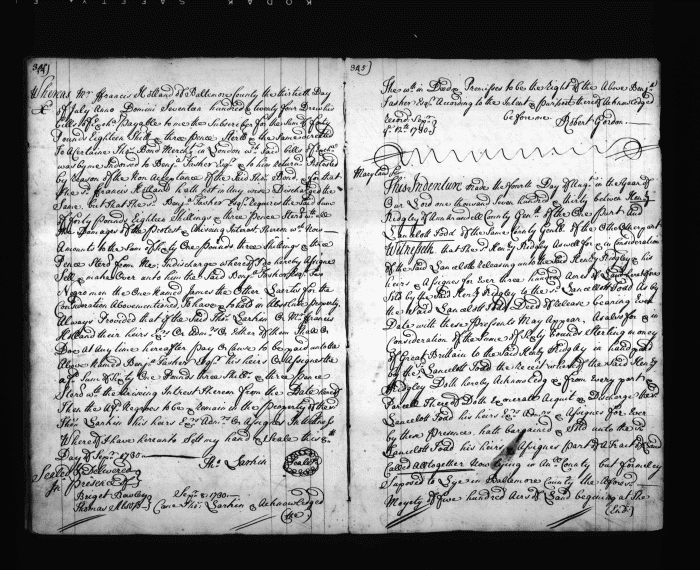 344)
Whereas Mr Francis Holland of Baltimore County the thirtieth Day
of July Anno Domini Seventen hundred & twenty four Drew his
bills of Exch. Payable to me the Subscriber for the Sum of forty
Pounds Eighteen Shill. & three pence Sterl. & the same directed
To a Certaine Thos. Bond Mercht. in London wch. said bills of Exch.
was by me Indorsed to Benj. Tasker Esqr. & to him return Protested
by reason of the Non Acceptance of the sd. Thos. Bond, & for that
the sd. Francis Holland hath not in Any wise Discharged the
Same, but that the sd. Benj. Tasker Esqr. requires the said sum
of forty Pounds Eighteen Shillings & three pence Sterl. with all
the Damages of the Protest & thiseing Intrest thereon wch. now
Amounts to the Sum of Sixty One Pounds three shillings & three
Pence Sterl. from the Indischarge whereof I do hereby Assigne
Sell & make Over unto him the Said Benj. Tasker Esqr. Two
Negro men the One Named James the Other Charles for the
Consideration Abovementioned, To have & to hold in Absolute property
Always Provided that if the said Thos. Larkin Or Mr. Francis
Holland their heirs Exrs. Or Admrs. Or Either of them Shall Or
Doe At any time hereafter Pay Or Cause to be paid unto the
Above Named Benj. Tasker Esqr. his heirs Or Assignes the
afsd. Sume of Sixty One Pounds three Shill. & three pence
Sterl. wth. the Ariseing Intrest Thereon from the Date hereof
Then the Afsd. Negroes to be & remain in the Property of the sd.
Thos. Larkin his heirs Exrs. Admrs. Or Assignes In Witness
Whereof I have hereunto Sett my hand & Seale this 8.
Day of Sepr. 1730
Thos. Larkin
Seale
Sealed & Delivered
In presence of
Briget Bowley
Thomas Alsop
Sepr. 8. 1730
Came Thos. Larkin & Acknowledged
(the)
345)
The wth. in Deed & Premisses to be the right of the Above Benj.
Tasker Esqr. According to the Intent & Purport thereof Acknowledged
before me
Robert Gordon
Record Sepr.
12th. 1730
Maryland Ss.
This Indenture made the fourth Day of Augt. in the year of
Our Lord one thousand Seven hundred & thirty between Henry
Ridgley of Ann Arundell County Gent. of the One Part and
Lancelott Todd of the Same County Gentle. of the Other part
Witnesseth that the sd. Henry Ridgley As well for & in Consideration
of the said Lancelott releasing unto the said Henry Ridgley his
heirs & Assignes for Ever three hundred Acres of Land
Sold by the said Henry Ridgley to the sd. Lancelott Todd As by
the Said Lancelott Todd Deed of Release bearing Even
Date with these Presents May Appear, As also for & in
Consideration of the Sume of Sixty Pounds Sterling money
of Great Brittain to the said Henry Ridgley in hand paid
by the sd. Lancelott Todd the receit whereof the said Henry
Ridgley Doth hereby Acknowledge & from every part &
Parcell thereof Doth Exonerate Acquit & Discharge the sd.
Lancelott Todd his heirs Exrs. Admrs. & Assignes for Ever
by these presence, hath bargained & Sold unto the sd.
Lancelott Todd his heirs & Assignes part of a Tract of Land
Called Altogether Now lying in Ann. County but formerly
Supposed to Lye in Baltemore County the Aforesd.
Moyety of five hundred Acres of Land begening at the
(End)